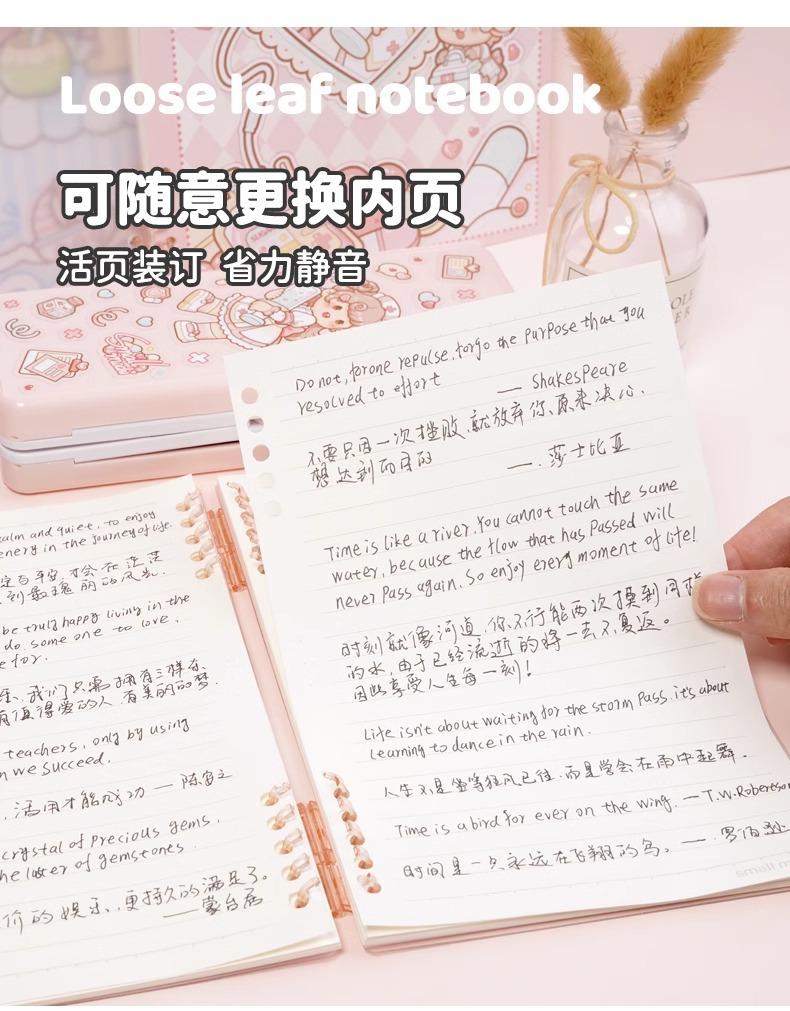 Loose leaf notebook
可随意更换内页
活页装订 省力静音
Do not, forone repulse, forgo the purpose that you
resolved to effort
— Shakespeare
不要只因一次挫败,就放弃你、原来决心,
想达到的目的
—. 莎士比亚
Time is like a river. You cannot touch the same
water, because the flow that has passed will
never pass again. So enjoy every moment of life!
时刻就像河道,你不可能两次摸到同
的水,由于已经流逝的将一去不复返。
因此享受人生每一刻!
Life isn't about waiting for the storm pass. it's about
learning to dance in the rain.
人生不是坐等狂风已往,而是学会在雨中起舞.
Time is a bird for ever on the wing. — T.W.Robertson
时间是一久永远在飞翔的鸟。—.罗伯逊
small m
calm and quiet, to enjoy
enery in the journey of life.
be truly happy living in the
do, some one to love,
e for.
我们只需拥有三样东
有值得爱的人,有美丽的梦
teachers, only by using
n we succeed.
活用才能成功 —
crystal of precious gems,
he luster of gemstones.
价的娱乐,更持久的满足了。
——蒙台居
OLE
ER